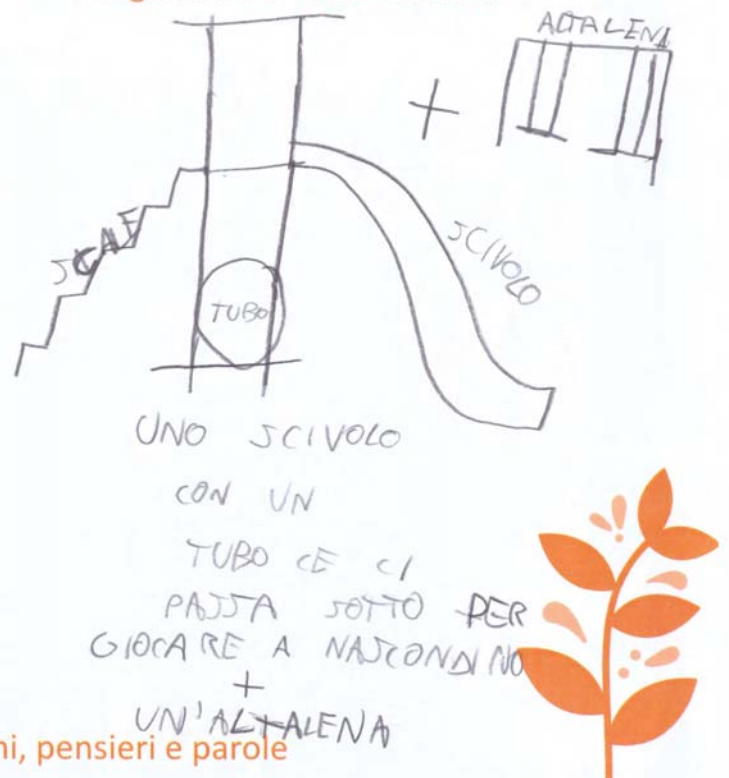 ALTALENA
SCALE
SCIVOLO
TUBO
UNO SCIVOLO
CON UN
TUBO CE CI
PASSA SOTTO PER
GIOCARE A NASCONDINO
+
UN'ALTALENA
ni, pensieri e parole